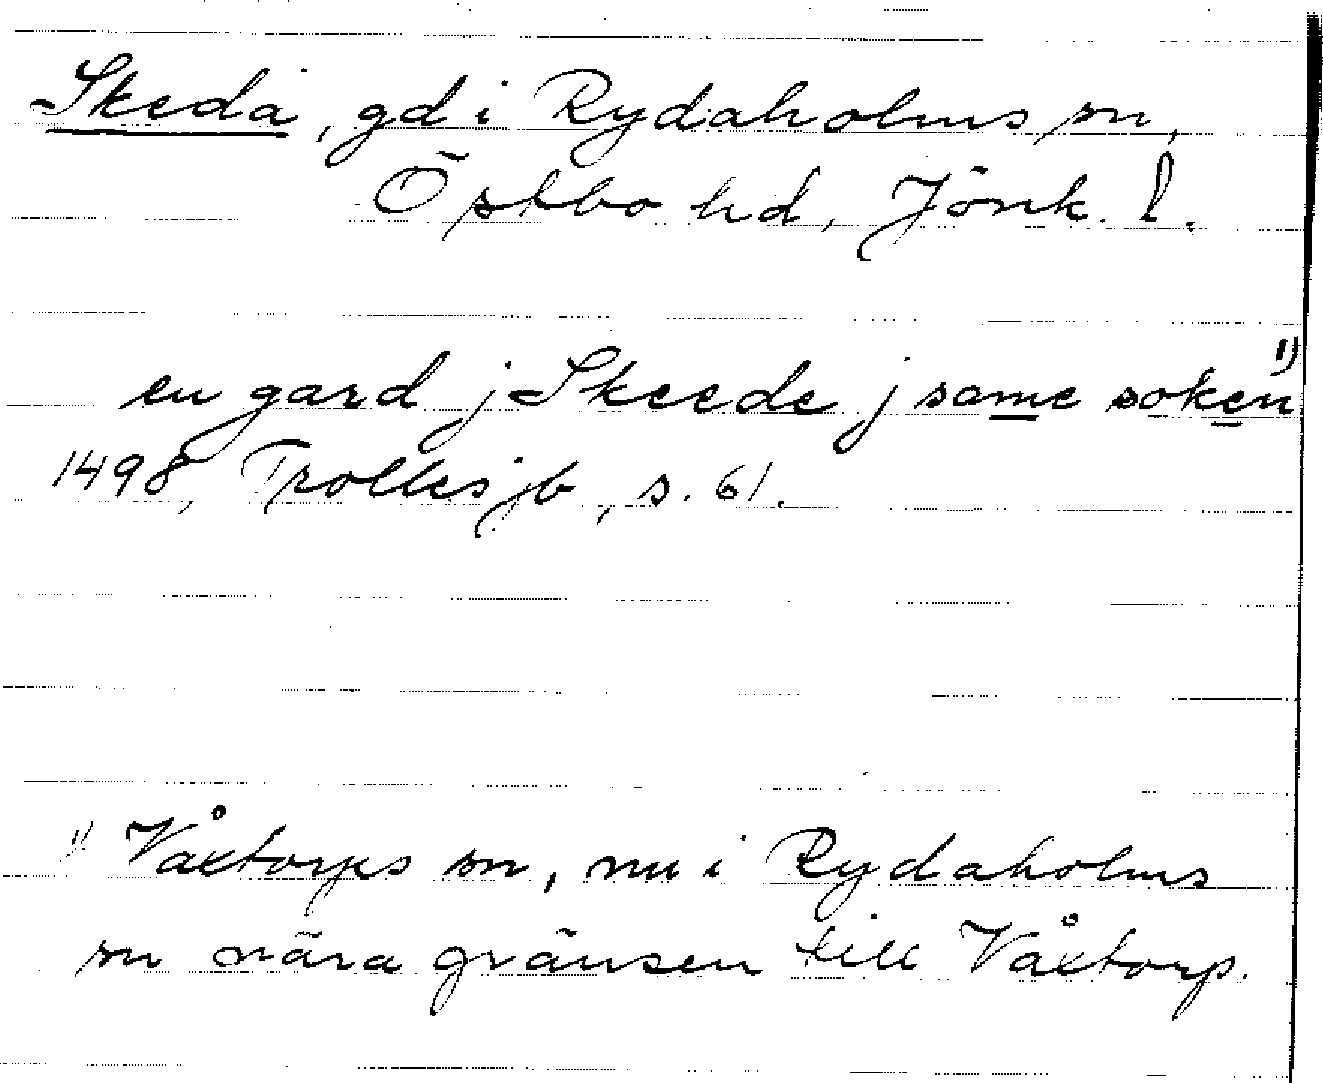 Skeda, gd i Rydaholms sn,
Östbo hd, Jönk. l.
en gard j Skeede j same soken 1)
1498, Trolles jb, s. 61.
1) Våxtorps sn, nu i Rydaholms
sn nära gränsen till Våxtorp.